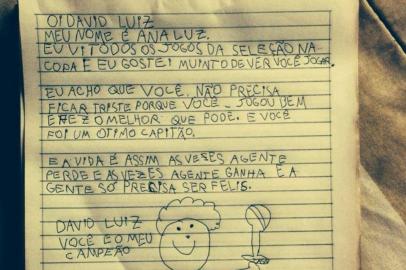 OI DAVID LUIZ
MEU NOME É ANA LUZ.
EU VI TODOS OS JOGOS DA SELEÇÃO NA
COPA E EU GOSTEI MUINTO DE VER VOCÊ JOGAR.
EU ACHO QUE VOCÊ NÃO PRECISA
FICAR TRISTE PORQUE VOCÊ JOGOU BEM
E FEZ O MELHOR QUE PODE. E VOCÊ
FOI UM OTIMO CAPITÃO.
E A VIDA É ASSIM AS VESES AGENTE
PERDE E AS VEZES AGENTE GANHA E A
GENTE SÓ PRECISA SER FELIS.
DAVID LUIZ
VOCÊ E O MEU
CAMPEÃO